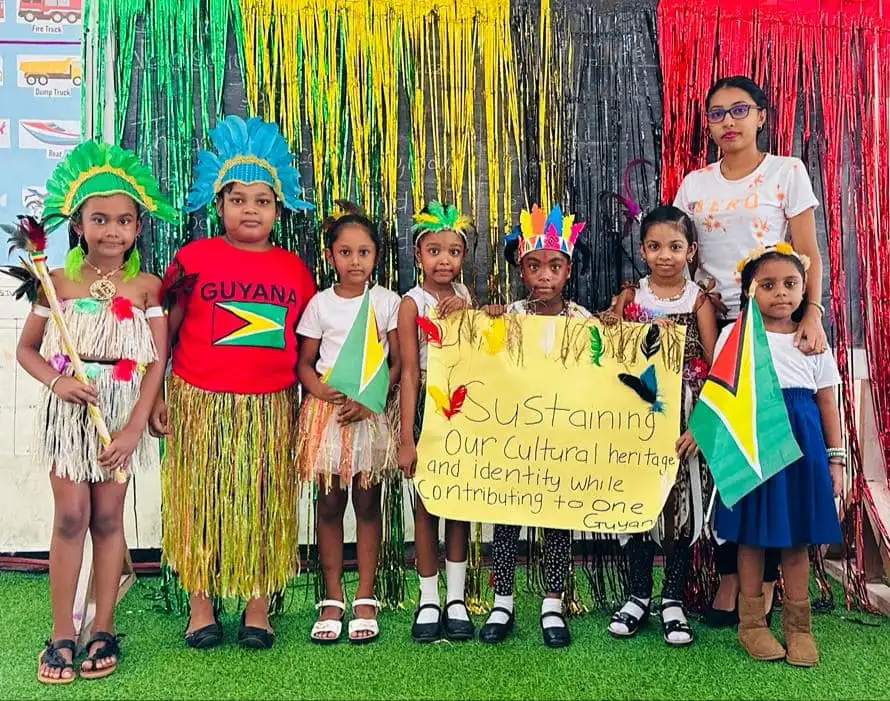 Fire Truck
Dump Truck
GUYANA
Sustaining
Our Cultural heritage
and identity while
Contributing to One
Guyan